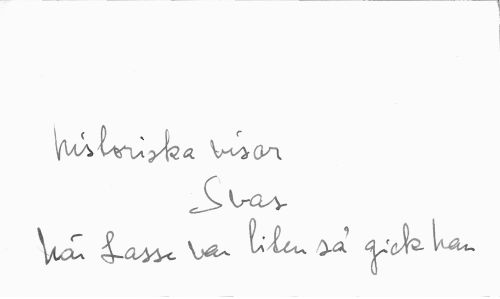 historiska visor
Svas
När Lasse var liten så gick han